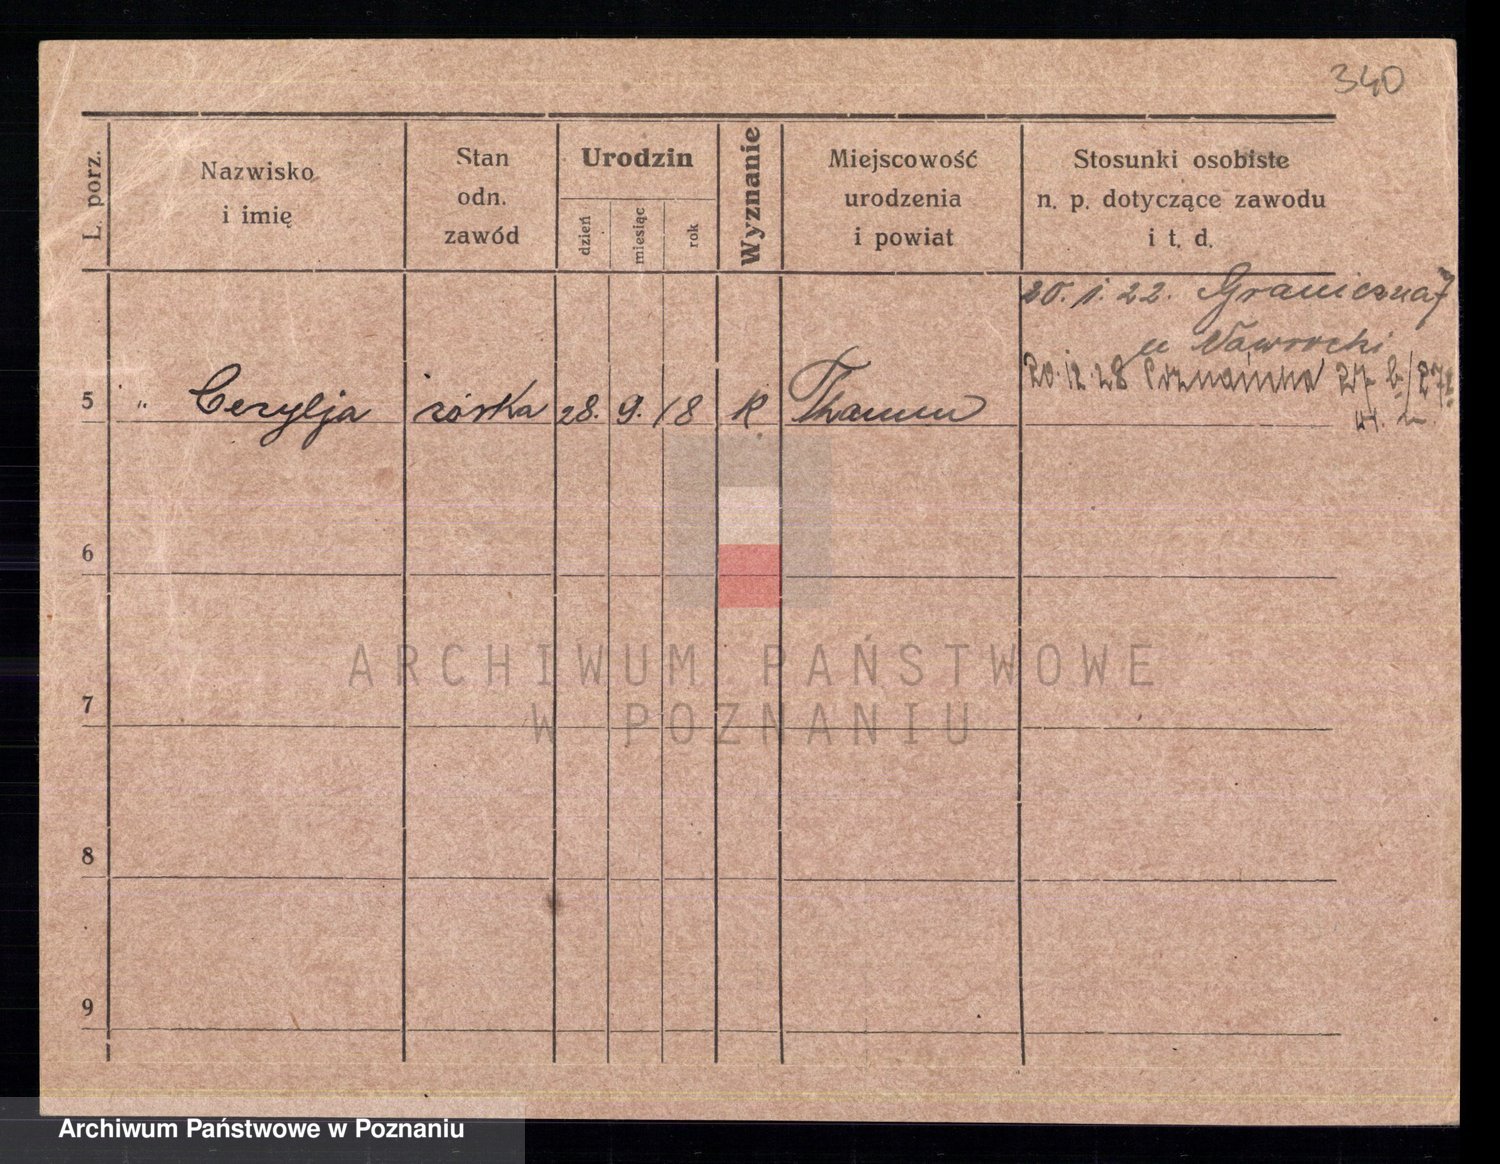 340
L. porz.
Nazwisko
i imię
Stan
odn.
zawód
Urodzin
dzień
miesiąc
rok
Wyznanie
Miejscowość
urodzenia
i powiat
Stosunki osobiste
n. p. dotyczące zawodu
i t. d.
20. 1. 22. Graniczna 7
u Nawrocki
20. 12. 28 Poznańska
5 " Cezylja córka 28. 9. 18 K
6
7
8
9
ARCHIWUM PAŃSTWOWE
W POZNANIU
Archiwum Państwowe w Poznaniu